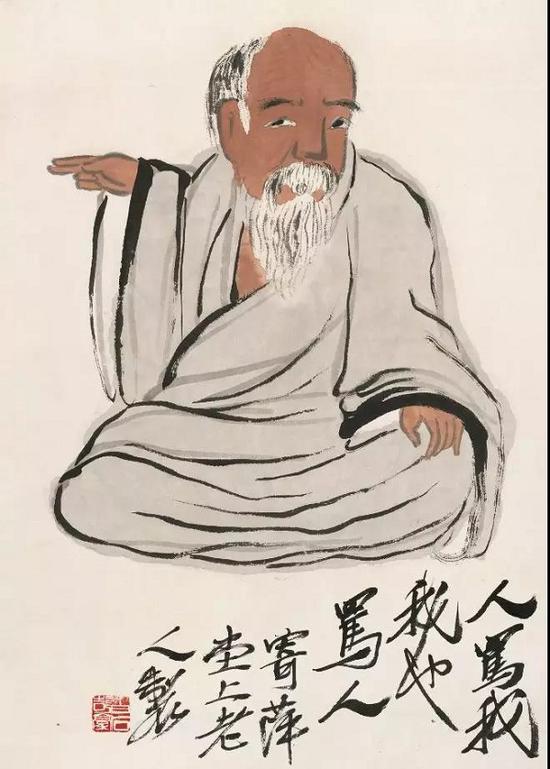 人罵我
我也
罵人
寄萍
堂上老
人製